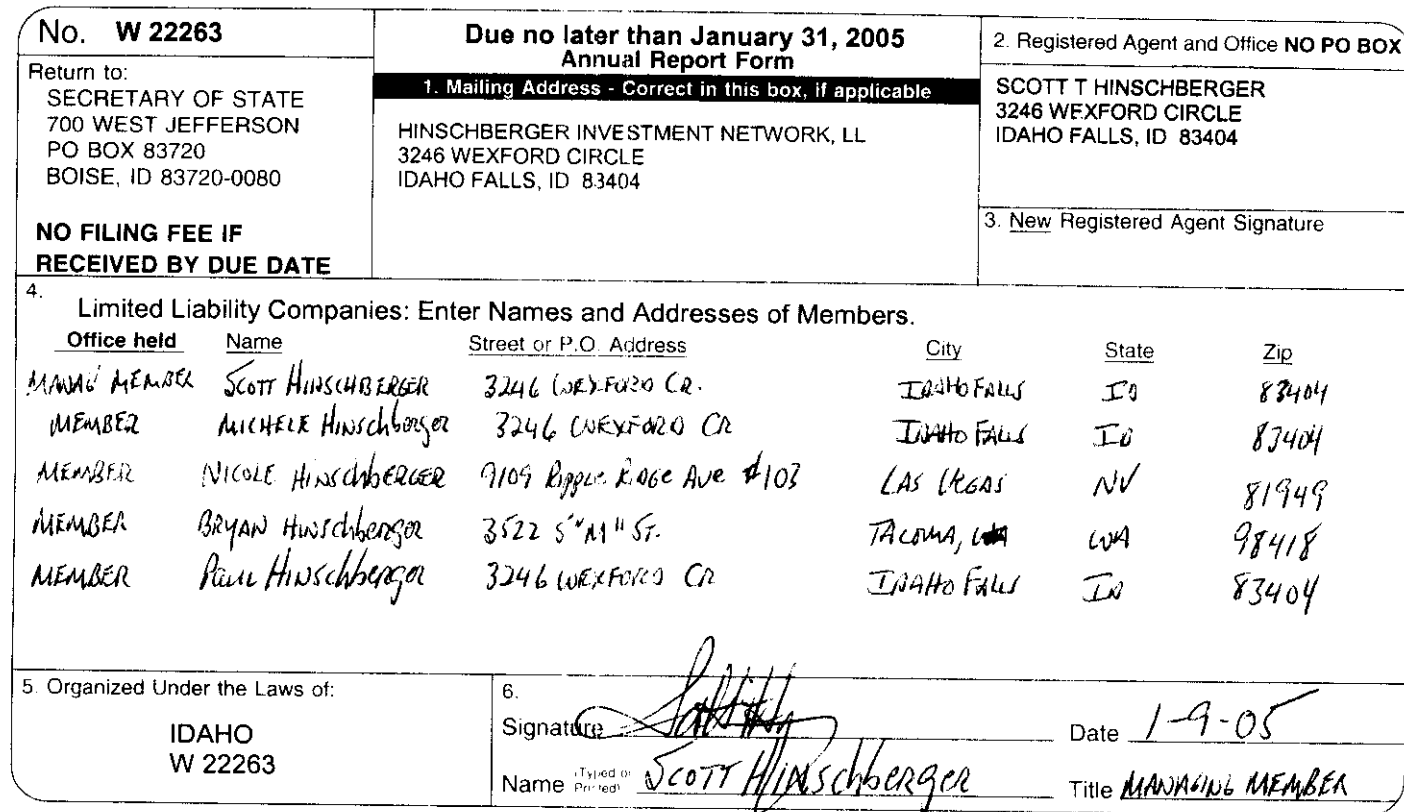 No. W 22263
Return to:
SECRETARY OF STATE
700 WEST JEFFERSON
PO BOX 83720
BOISE, ID 83720-0080
NO FILING FEE IF
RECEIVED BY DUE DATE
Due no later than January 31, 2005
Annual Report Form
1. Mailing Address - Correct in this box, if applicable
HINSCHBERGER INVESTMENT NETWORK, LL
3246 WEXFORD CIRCLE
IDAHO FALLS, ID 83404
2. Registered Agent and Office NO PO BOX
SCOTT T HINSCHBERGER
3246 WEXFORD CIRCLE
IDAHO FALLS, ID 83404
3. New Registered Agent Signature
4.
Limited Liability Companies: Enter Names and Addresses of Members.
Office held Name Street or P.O. Address City State Zip
MEMBER SCOTT HINSCHBERGER 3246 WEXFORD CR. IDAHO FALLS ID 83404
MEMBER MICHELE HINSchberger 3246 WEXFORD CR IDAHO FALLS ID 83404
MEMBER NICOLE HINSchBERGER 9109 Ripple RIDGE AVE #103 LAS VEGAS NV 81949
MEMBER BRYAN HINSchberger 3522 S "M" ST. TACOMA, WA 98418
MEMBER PAUL HINSchberger 3246 WEXFORD CR IDAHO FALLS ID 83404
5. Organized Under the Laws of:
IDAHO
W 22263
6.
Signature Date 1-9-05
Name (Typed or Printed) SCOTT HINSchbERGER Title MANAGING MEMBER